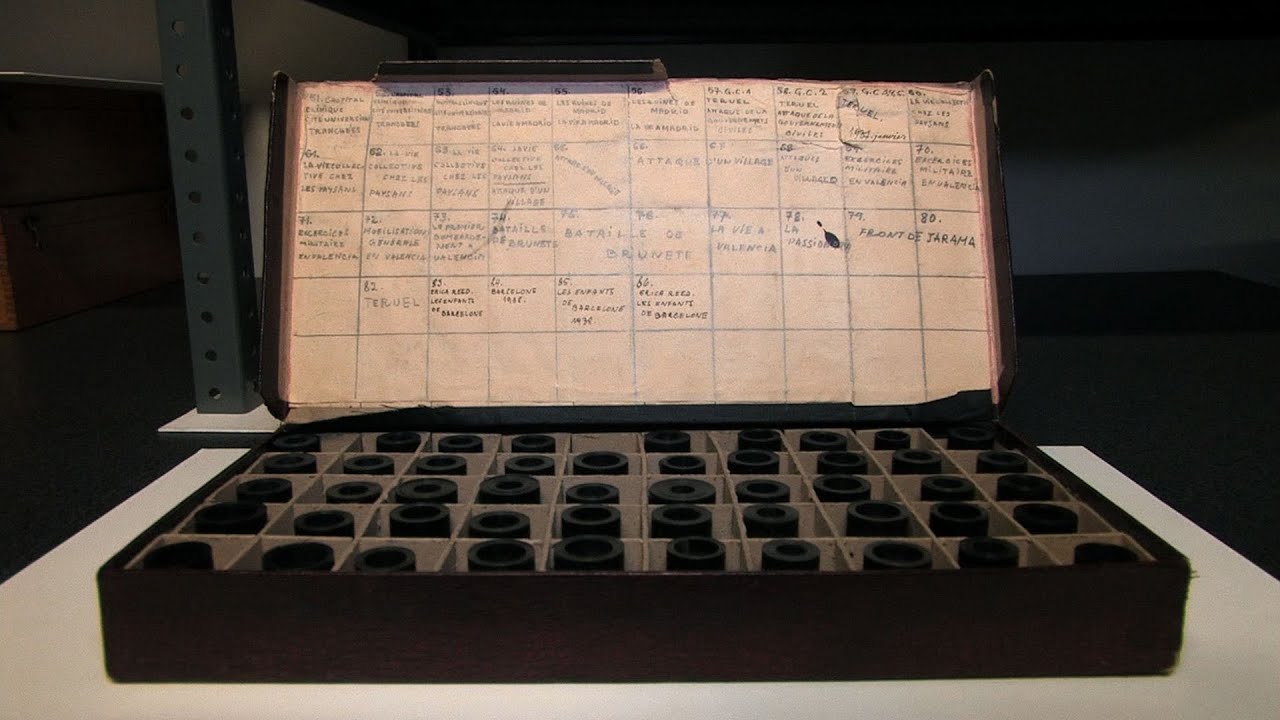 51. CHAPITAL
CLINIQUE
CITE UNIVERSITAIRE
TRANCHEES
CLINIQUE
CITE UNIVERSITAIRE
TRANCHEES
53.
CLINIQUE
TRANCHEES
54.
LES RUINES DE
MADRID
LA VIE MADRID
55.
LES RUINES DE
MADRID
LA VIE MADRID
56.
LES RUINES DE
MADRID
LA VIE A MADRID
57. G.C. 1
TERUEL
ATTAQUE DE LA
GOUVERNEMENTS
CIVILES
58. G.C. 2
TERUEL
ATTAQUE DE LA
GOUVERNEMENTS
CIVILES
59. G.C.
TERUEL
janvier
60.
LA VIE COLLECTIVE
CHEZ LES
PAYSANS
61.
LA VIE COLLEC
TIVE CHEZ
LES PAYSANS
62. LA VIE
COLLECTIVE
CHEZ LES
PAYSANS
63. LA VIE
COLLECTIVE
CHEZ LES
PAYSANS
64. LA VIE
COLLECTIVE
CHEZ LES
PAYSANS
ATAQUE D'UN
VILLAGE
65.
66.
67.
L'ATTAQUE D'UN VILLAGE
68.
ATTAQUES
D'UN
VILLAGE
69.
EXERCICES
MILITAIRE
EN VALENCIA
70.
EXCERCICES
MILITAIRE
EN VALENCIA
71.
EXCERCICES
MILITAIRE
EN VALENCIA
72.
MOBILISATION
GENERALE
EN VALENCIA
73.
LE PREMIER
BOMBARDE-
MENT A
VALENCIA
74.
BATAILLE
DE BRUNETE
75.
76.
BATAILLE DE
BRUNETE
77.
LA VIE A
VALENCIA
78.
LA
PASSIONARIA
79.
80.
FRONT DE JARAMA
82.
TERUEL
83.
ERICA REED.
LES ENFANTS
DE BARCELONE
84.
BARCELONE
1938.
85.
LES ENFANTS
DE BARCELONE
1938.
86.
ERICA REED.
LES ENFANTS
DE BARCELONE